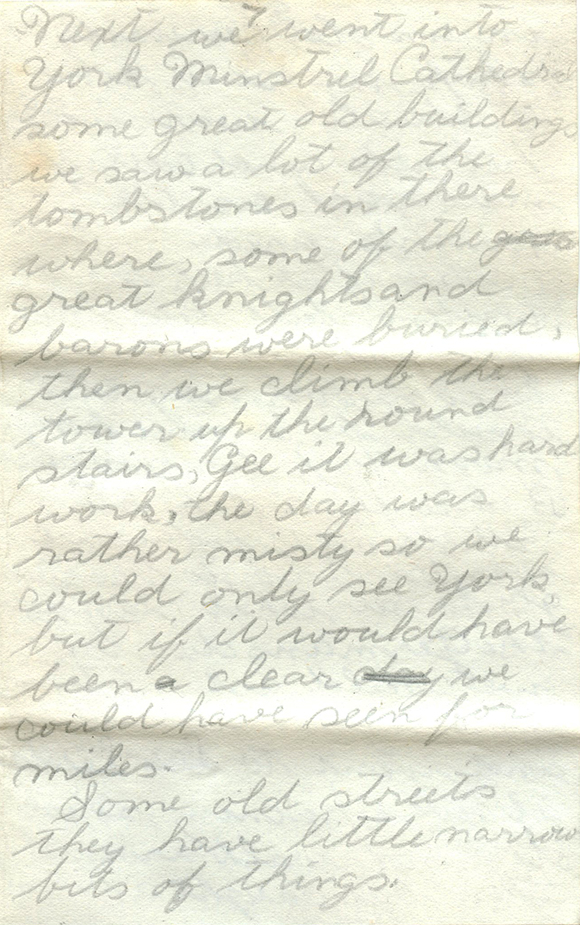 Next we went into
York Minstrel Cathedral
some great old buildings
we saw a lot of the
tombstones in there
where, some of the
great knights and
barons were buried,
then we climb the
tower up the round
stairs, Gee it was hard
work, the day was
rather misty so we
could only see York,
but if it would have
been a clear day we
could have seen for
miles.
Some old streets
they have little narrow
bits of things.